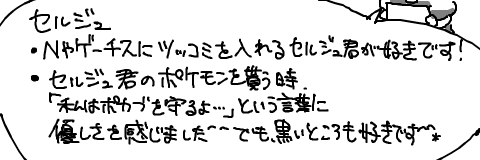 セルジュ
・Nやゲーチスにツッコミを入れるセルジュ君が好きです！
・セルジュ君のポケモンを貰う時、
「私はポカブを守るよ…」という言葉に
優しさを感じました～～でも、黒いところも好きです～*